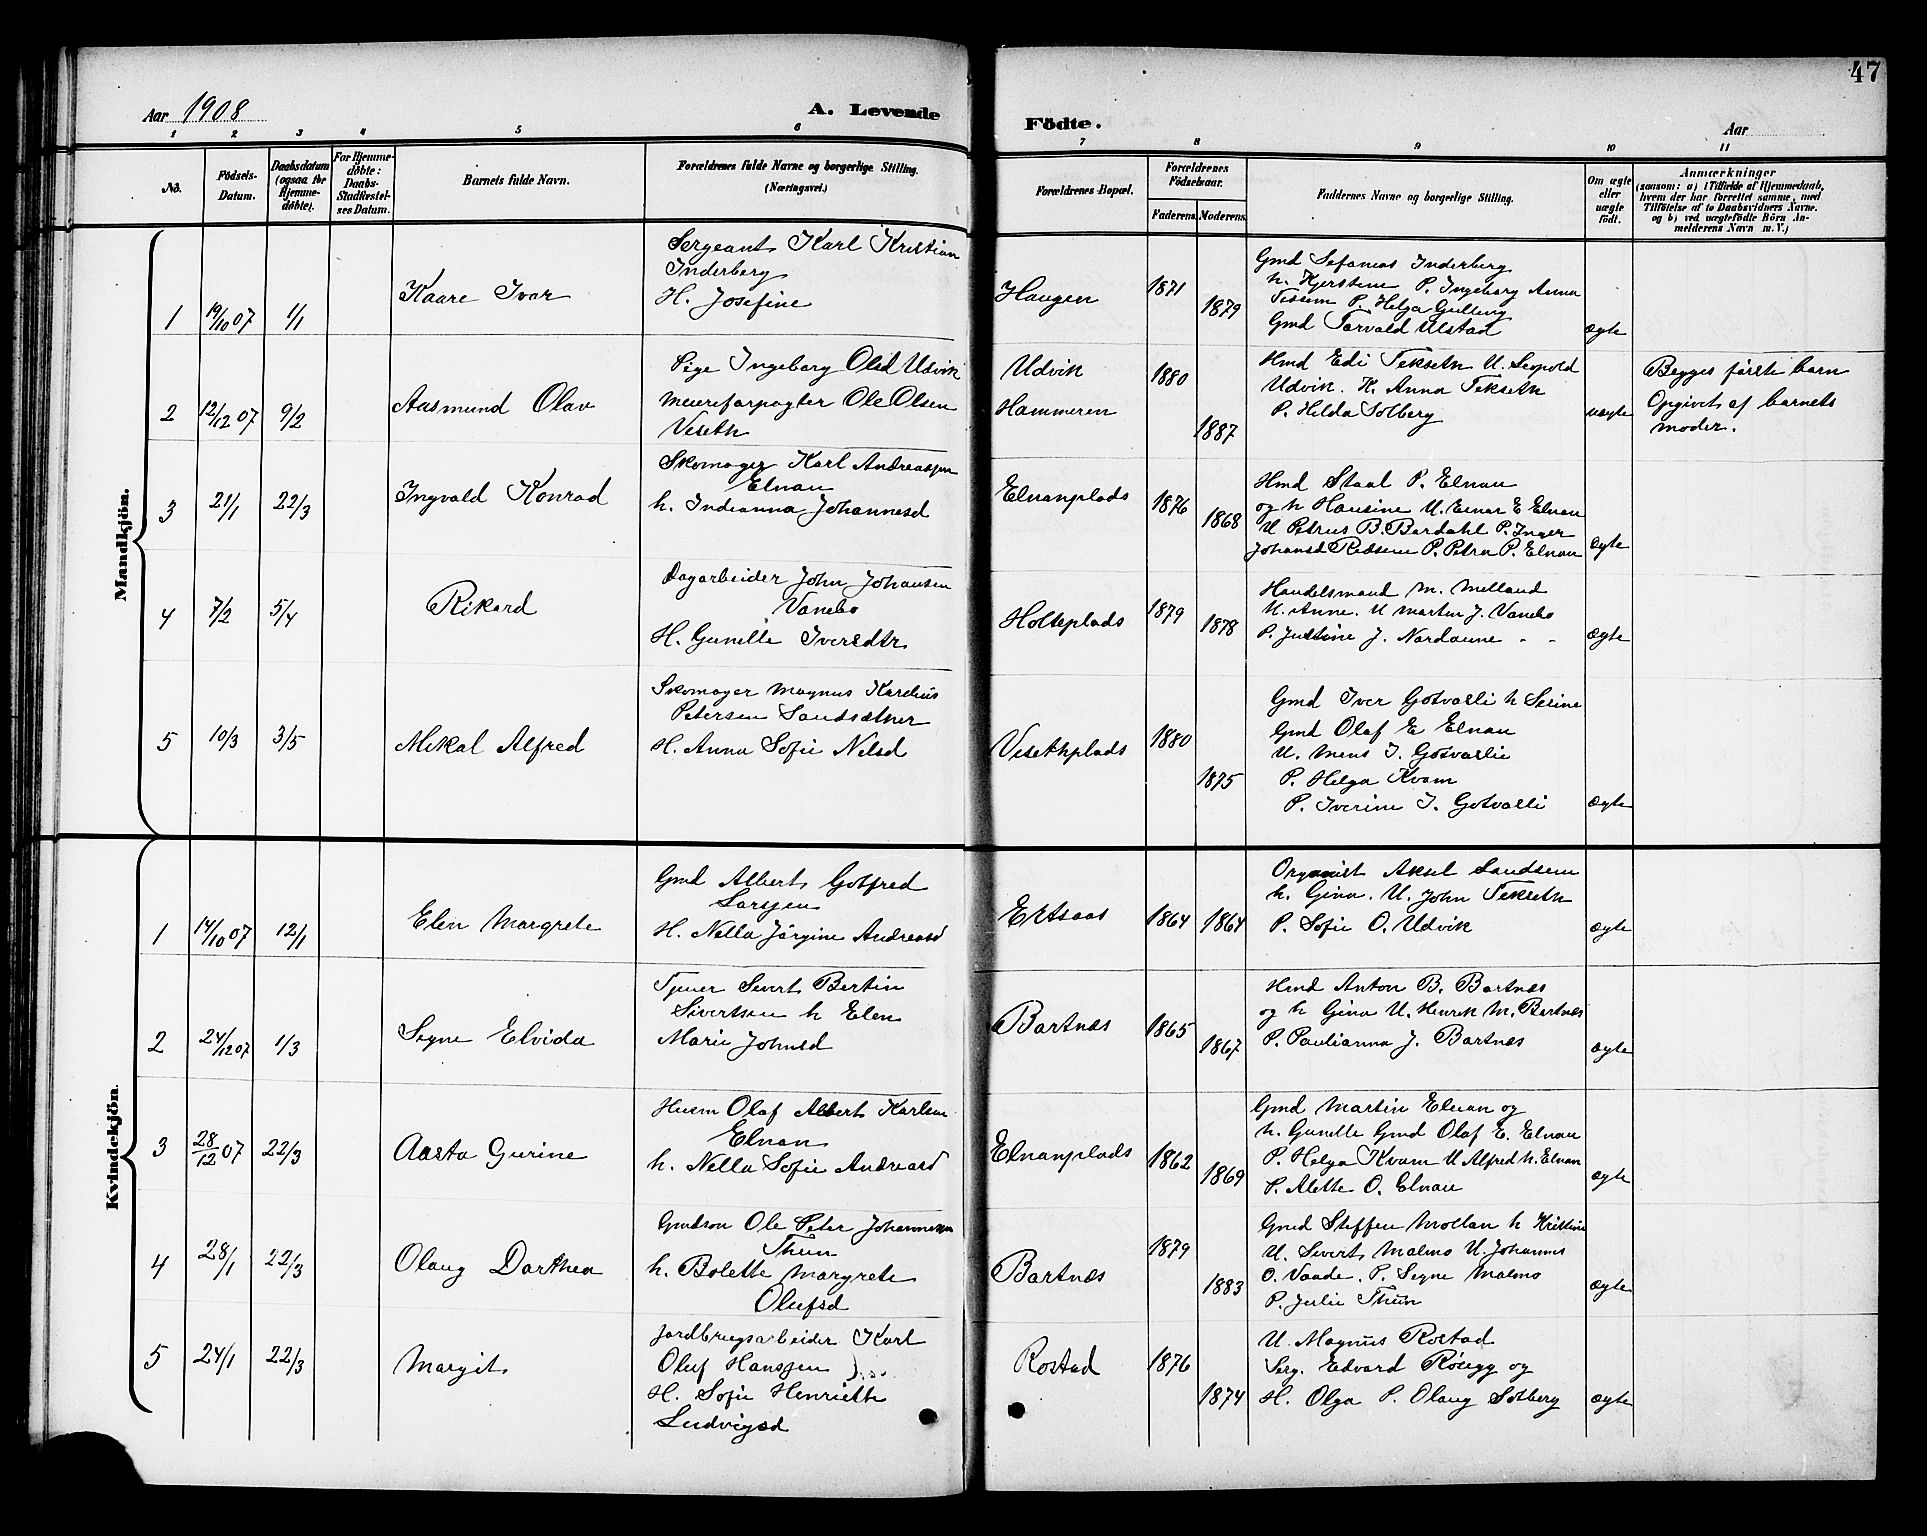 47
Aar 1908
A. Levende
Födte.
Aar
1 2 3 4 5 6 7 8 9 10 11
No.
Födsels-
Datum.
Daabsdatum
(ogsaa for
Hjemme-
døbte).
For Hjemme-
døbte:
Daabs-
Stadfæstel-
ses Datum.
Barnets fulde Navn.
Forældrenes fulde Navne og borgerlige Stilling.
(Næringsvei.)
Forældrenes Bopæl.
Forældrenes
Födselsaar.
Faderens.
Moderens.
Faddernes Navne og borgerlige Stilling.
Om ægte
eller
uægte
født.
Anmærkninger
(saasom: a) i Tilfælde af Hjemmedaab,
hvem der har forrettet samme, med
Tilföielse af to Daabsvidners Navne.
og b) ved uægtefödte Börn An-
melderens Navn m. V.)
Mandkjön.
1
19/10 07
1/1
Kaare Ivar
Sergeant Karl Kristian
Inderberg
H. Josefine
Haugen
1871
1879
Gmd Sefanias Inderberg
h. Kjerstine P. Ingeborg Anna
Tessem P. Helga Gulling
Gmd Torvald Ulstad
ægte
2
12/12 07
9/2
Aasmund Olav
Pige Ingeborg Olsd Udvik
Meierforpagter Ole Olsen
Viseth
Udvik
Hammeren
1880
1887
Hmd Edi Tekseth U. Leopold
Udvik. H. Anna Tekseth
P. Hilda Solberg
uægte
Begges første barn
Opgivet af barnets
moder.
3
21/1
22/3
Ingvald Konrad
Skomager Karl Andreassen
Elnan
h. Indianna Johannesd
Elnanplads
1876
1868
Hmd Staal P. Elnan
og h Hansine U. Einar E Elnan
U Petrus B. Bardahl P. Inger
Johansd P. Petra P. Elnan
ægte
4
7/2
5/4
Rikard
Dagarbeider John Johansen
Vanebo
H. Gunelle Iversdtr
Holteplads
1879
1878
Handelsmand M. Melland
H. Anne. U Martin J. Vanebo
P. Justine J. Nordaune - -
ægte
5
10/3
3/5
Mikal Alfred
Skomager Magnus Kornelius
Petersen Sandsætner
H. Anna Sofie Nelsd
Visethplads
1880
1875
Gmd Iver Gotvasli h Serine
Gmd Olaf E Elnan
U. Mens I. Gotvaslie
P. Helga Kvam
P. Iverine I. Gotvasli
ægte
Kvindekjön.
1
14/10 07
12/1
Elen Margrete
Gmd Albert Gotfred
Larssen
H. Nella Jørgine Andreasd
Ertsaas
1864
1864
Organist Aksel Sandsem
h. Gina. U. John Tekseth
P. Sofie O. Udvik
ægte
2
24/12 07
1/3
Signe Elvida
Tjener Sivert Bertin
Sivertsen h Elen
Marie Johnsd
Bartnæs
1865
1867
Hmd Anton B. Bartnæs
og h Gina U. Henrik M. Bartnæs
P. Paulianna J. Bartnæs
ægte
3
28/12 07
22/3
Aasta Gurine
Husm Olaf Albert Karlsen
Elnan
h. Nella Sofie Andreasd
Elnanplads
1862
1869
Gmd Martin Elnan og
h. Gunelle Gmd Olaf E. Elnan
P. Helga Kvam U Alfred h. Elnan
P. Alette O. Elnan
ægte
4
28/1
22/3
Olaug Dorthea
Gmdsøn Ole Peter Johannessen
Thun
h. Bolette Margrete
Olufsd
Bartnæs
1879
1883
Gmd Steffen Mollan h Kristine
U. Sivert Malmo U. Johannes
O. Vaade. P. Signe Malmo
P. Julie Thun
ægte
5
24/1
22/3
Margit
Jordbrugsarbeider Karl
Oluf Hanssen
H. Sofie Henriette
Ludvigsd
Rostad
1876
1874
U. Magnus Rostad
Serg. Edvard Rösegg og
H. Olga P. Olaug Solberg
ægte